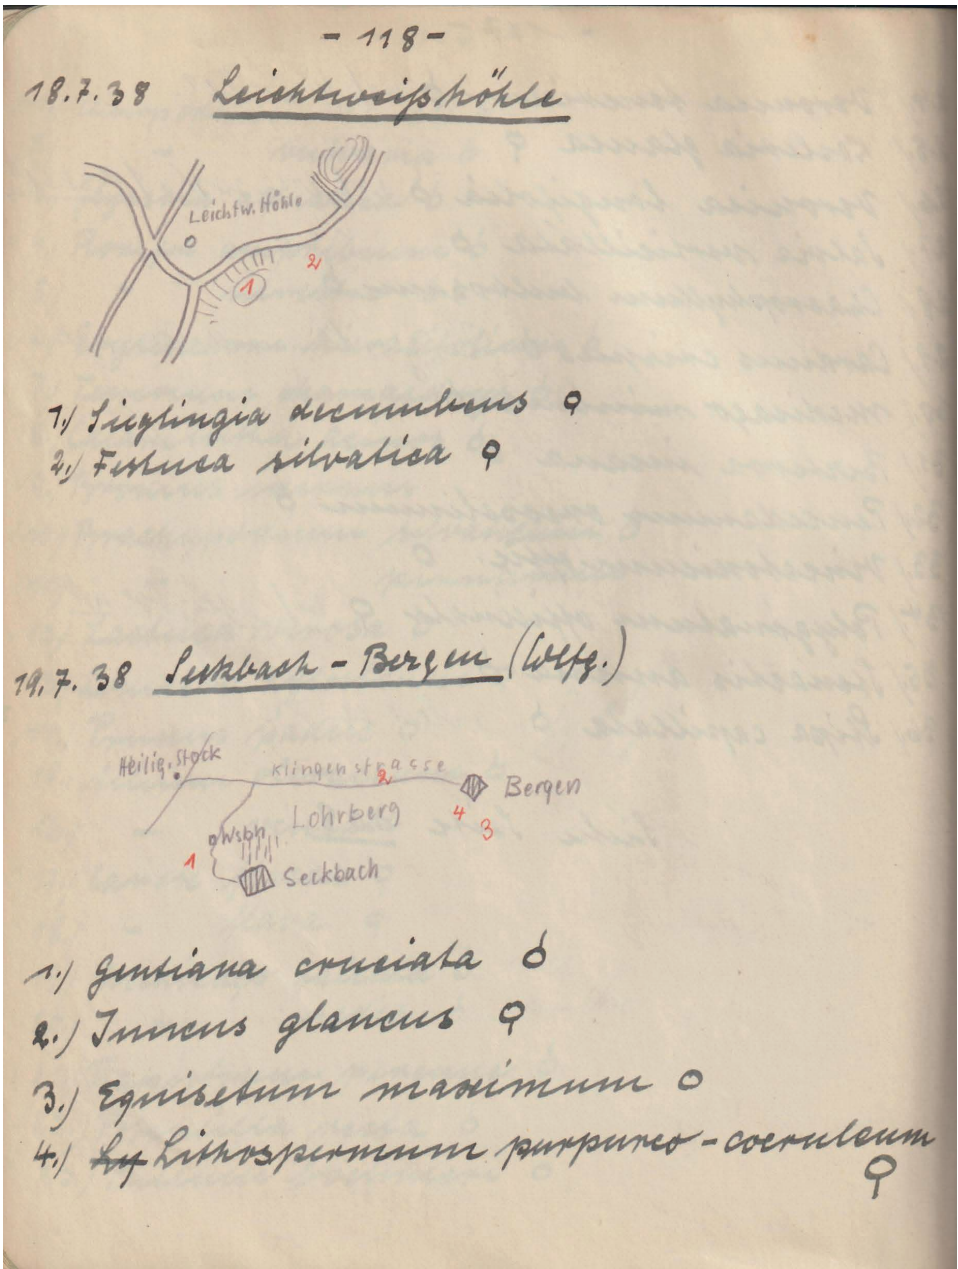 - 118 -
18.7.38 Leichtweißhöhle
Leichtw. Höhle
2
1
1.) Sieglingia decumbens ♀
2.) Festuca silvatica ♀
19.7.38 Seckbach - Bergen (Wlfg.)
Heilig. Stock
Klingenstrasse
2
Bergen
Lohrberg
4
3
Wsbh
1
Seckbach
1.) Gentiana cruciata
2.) Juncus glaucus ♀
3.) Equisetum maximum o
4.) Ly Lithospermum purpureo-coeruleum
♀